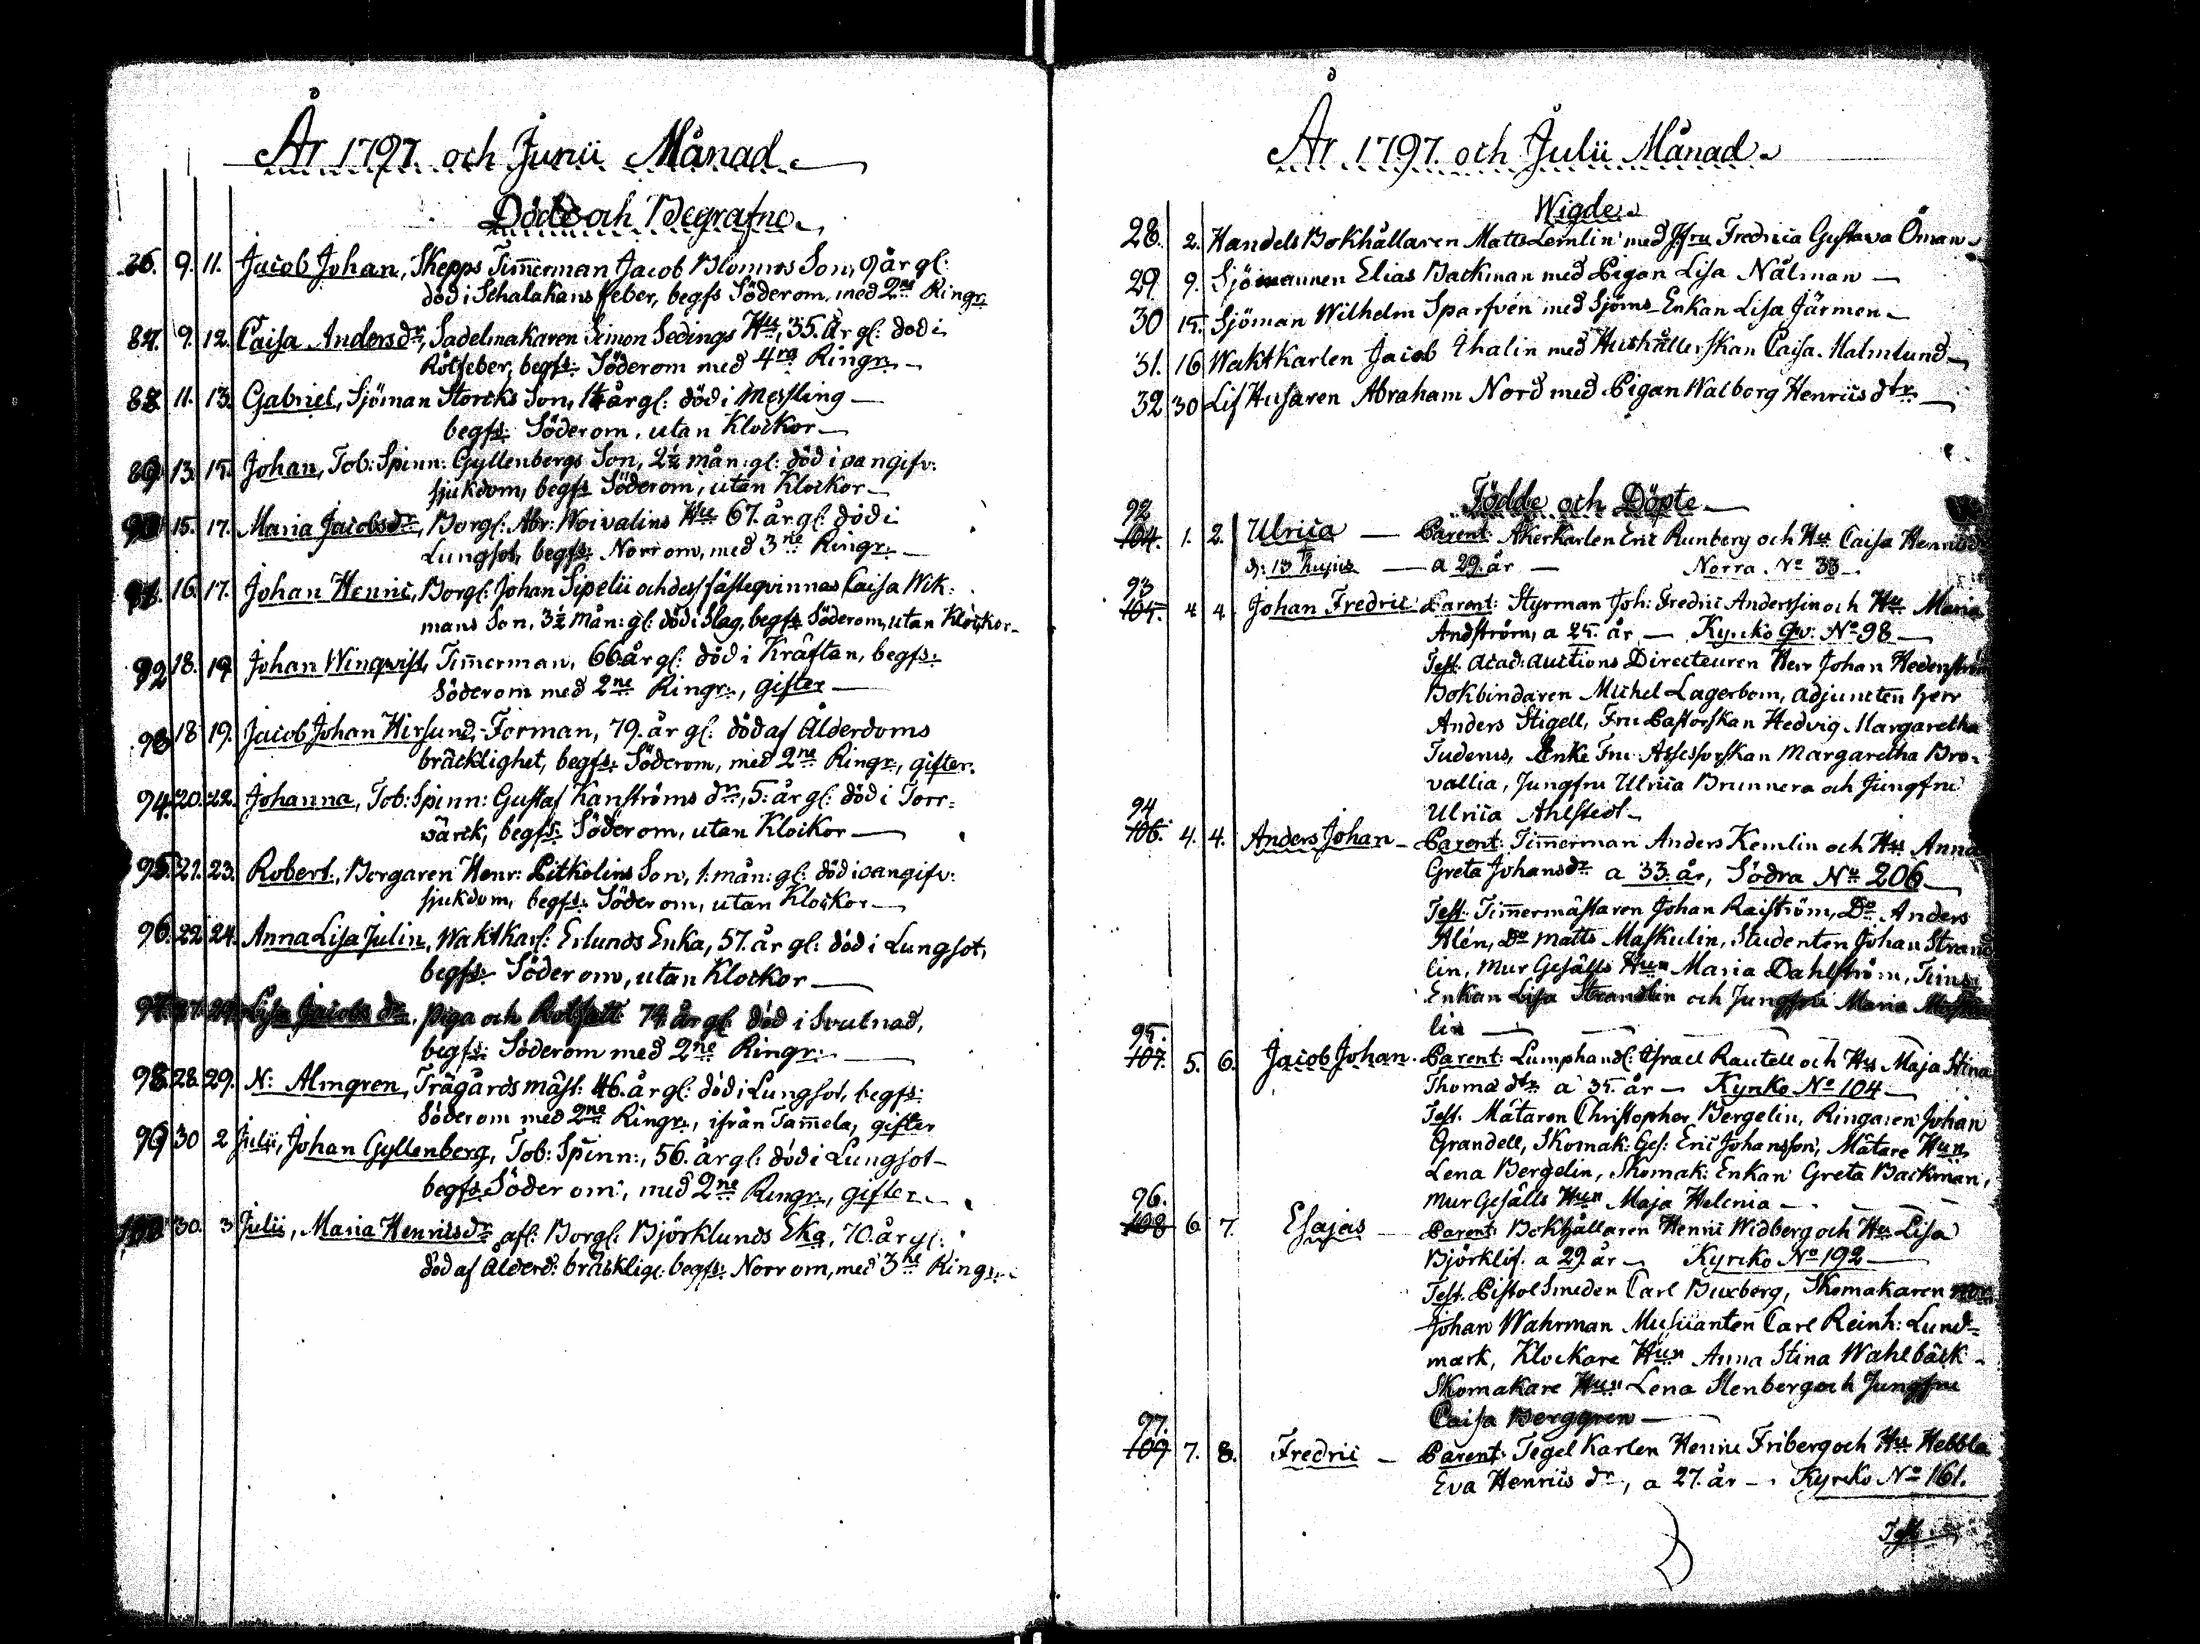 År 1797. och Junii Månad.
Döde och Begrafne.
86. 9. 11. Jacob Johan, Skepps Timmerman Jacob Blomros Son, 9 år gl:
död i Schalakans feber, begfs Söderom, med 2ne Ringr.
87. 9. 12. Caisa Andersdr, Sadelmakaren Simon Sedings Hu, 35. år gl: död i
Rötfeber, begfs: Söderom med 4ra Ringr.
88 11. 13. Gabriel, Sjöman Storcks Son, år gl: död i Messling
begfs: Söderom, utan Klockor
89 13. 15. Johan, Tob: Spinn: Gyllenbergs Son, 2½ mån: gl: död i oangifv:
sjukdom, begfs Söderom, utan Klockor
90 15. 17. Maria Jacobsdr, Borgl: Abr: Woivalins Hu 67. år gl: död i
Lungsot, begfs: Norrom, med 3ne Ringr:
91. 16. 17. Johan Henric, Borgl: Johan Sipelii och dess fästeqvinnas Caisa Wik:
mans Son, 3½ mån: gl: död i Slag, begfs Söderom, utan Klockor
92 18. 19. Johan Winqvist, Timmerman, 66. år gl: död i Kräftan, begfs:
Söderom med 2ne Ringr:, gifter
93 18 19. Jacob Johan Hirsund, Forman, 79. år gl: död af Ålderdoms
bräcklighet, begfs: Söderom, med 2ne Ringr., gifter.
94. 20. 22. Johanna, Tob: Spinn: Gustaf Kanströms dr, 5: år gl: död i Torr=
värck, begfs: Söderom, utan Klockor
95. 21. 23. Robert, Borgaren Henr: Pitkelins Son, 1. mån: gl: död i oangifv:
sjukdom, begfs: Söderom, utan Klockor
96. 22. 24. Anna Lisa Julin, Waktkarl: Erlunds Enka, 57. år gl: död i Lungsot,
begfs: Söderom, utan Klockor
97. 27. 29. Lisa Jacobs dr. Piga och år gl: död i Svulnad,
begfs: Söderom med 2ne Ringr:
98. 28. 29. N: Almgren, Trägårdsmäst: 46. år gl: död i Lungsot, begfs:
Söderom med 2ne Ringr:, ifrån Tammela, gifter
99 30 2 Julii, Johan Gyllenberg, Tob: Spinn:, 56. år gl: död i Lungsot
begfs Söderom, med 2ne Ringr., gifter.
100 30. 3 Julii, Maria Henricsdr afl: Borgl: Björklunds Eka, 70. år gl:
död af Ålderd: bräcklig: begfs: Norrom, med 3ne Ringr:
År 1797. och Julii Månad.
Wigde.
28. 2. Handels Bokhållaren Matts Lemlin med Jfru Fredrica Gustava Öman
29. 9. Sjömannen Elias Backman med Pigan Lisa Nålman
30 15. Sjöman Wilhelm Sparfvén med Sjöms Enkan Lisa Järmen
31. 16 Waktkarlen Jacob Thalin med Hushållerskan Caisa Malmlund
32 30 Lif Husaren Abraham Nord med Pigan Walborg Henrics dtr
Födde och Döpte
92
104. 1. 2. Ulrica Parent: Åkerkarlen Eric Runberg och Hu Caisa Henricsdr
d: 13 hujus a 29. år Norra. No 33
93
105. 4 4 Johan Fredric Parent: Styrman Joh: Fredric Anderssin och Hu Maria
Andström, a 25. år Kyrcko Qv: No 98
Test. Acad: auctions Directeuren Herr Johan Hedenström
Bokbindaren Michel Lagerbom, Adjuncten Herr
Anders Stigell, Fru Pastorskan Hedvig Margaretha
Tuderus, Enke Fru Assessorskan Margaretha Bro=
vallia, Jungfru Ulrica Brunnera och Jungfru
Ulrica Ahlstedt
94
106. 4. 4. Anders Johan Parent: Timmerman Anders Kemlin och Hu Anna
Greta Johansdr a 33. år, Södra No 206
Test: Timmermästaren Johan Raiström, Do Anders
Alén, Do Matts Maskulin, Studenten Johan Strand
lin, Mur Gesälls Hun Maria Dahlström,
Enkan Lisa Strandlin och Jungfru Maria
lin
95.
107. 5. 6. Jacob Johan. Parent: Lumphandl: Israel Rautell och Hu Maja Stina
Thoma dtr a 35. år Kyrko No 104
Test. Mätaren Christopher Bergelin, Ringaren Johan
Grandell, Skomak: Ges: Eric Johansson, Mätare Hun
Lena Bergelin, Skomak: Enkan Greta Backman,
Mur Gesälls Hun Maja Helenia
96.
108 6. 7. Esajas Parent: Bokhållaren Henric Widberg och Hu Lisa
Björklöf. a 29. år Kyrcko No 192
Test. Pistolsmeden Carl Buxberg, Skomakaren
Johan Wahrman Musicanten Carl Reinh: Lund=
mark, Klockare Hun Anna Stina Wahlbäck
Skomakare Hun Lena Stenberg och Jungfru
Caisa Berggren
97.
109 7. 8. Fredric Parent: Tegel Karlen Henric Friberg och Hu Hebbla
Eva Henrics dr, a 27. år Kyrcko No 161.
Test